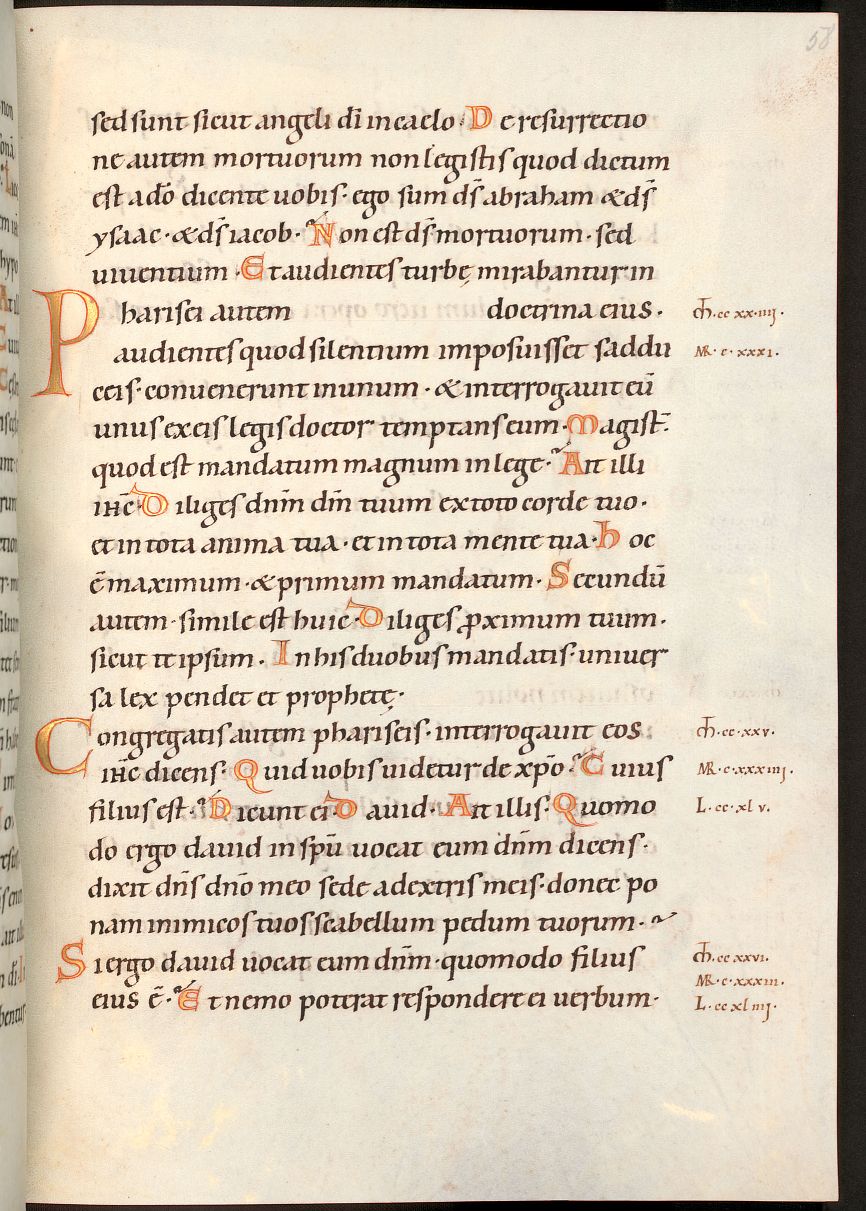 58
sed sunt sicut angeli dī in caelo· De resurrectio
ne autem mortuorum non legistis quod dictum
est a dō dicente uobis· ego sum ds̄ abraham & ds̄
ysaac· & ds̄ iacob· Non est ds̄ mortuorum· sed
uiuentium· Et audientes turbę mirabantur in
doctrina eius·
Pharisei autem
audientes quod silentium imposuisset saddu
ceis· conuenerunt in unum· & interrogauit eū
unus ex eis legis doctor temptans eum· Magist̄·
quod est mandatum magnum in lege· Ait illi
iħc· Diliges dn̄m dm̄ tuum ex toto corde tuo·
et in tota anima tua· et in tota mente tua· hoc
ē maximum· & primum mandatum· Secundū
autem· simile est huic· Diliges ꝓximum tuum·
sicut te ipsum· In his duobus mandatis· uniuer
sa lex pendet et prophetę·
Congregatis autem phariseis· interrogauit eos
iħc dicens· Quid uobis uidetur de xp̄o· Cuius
filius est· Dicunt ei· Dauid· Ait illis· Quomo
do ergo dauid in sp̄u uocat eum dn̄m dicens·
dixit dn̄s dn̄o meo sede a dextris meis· donec po
nam inimicos tuos scabellum pedum tuorum·
Si ergo dauid uocat eum dn̄m· quomodo filius
eius ē· Et nemo poterat respondere ei uerbum·
·cc xx·iiij·
MR·c·xxxi·
·cc·xxv·
MR·c·xxxiiij·
L·cc·xlv·
·cc xxvi·
MR·c·xxxiii·
L·cc xliiij·